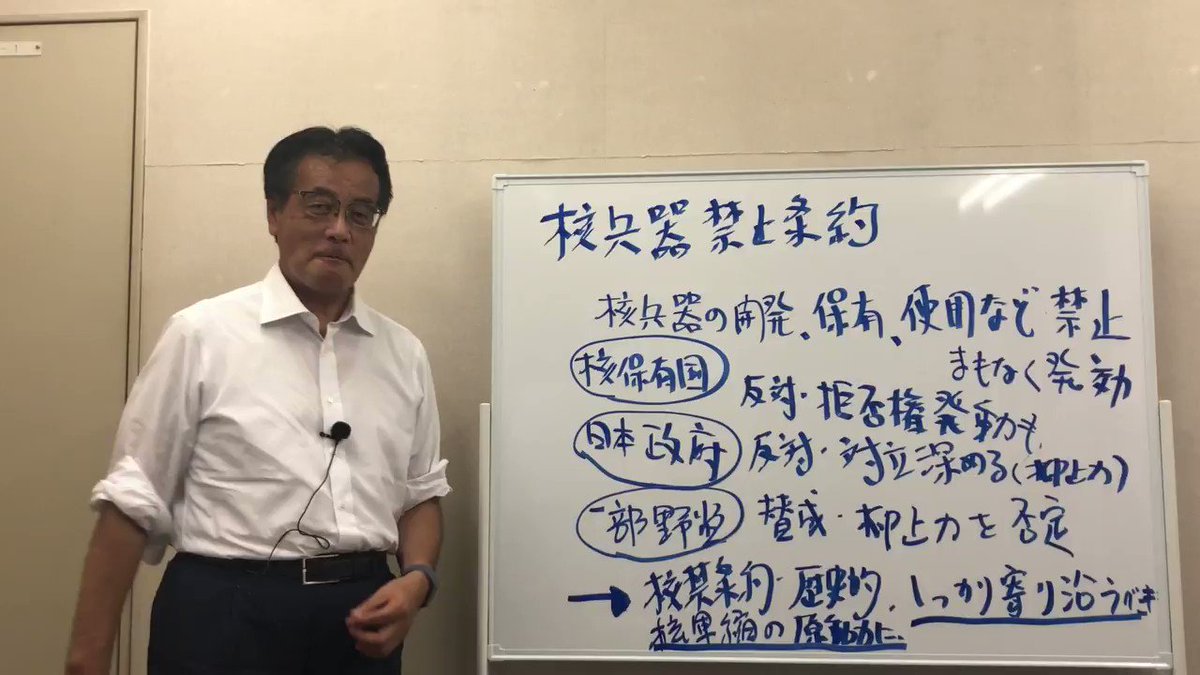 核兵器禁止条約
核兵器の開発、保有、使用など禁止
まもなく発効
核保有国 反対・拒否権発動も
日本政府 反対・対立深める(抑止力)
一部野党 賛成・抑止力を否定
→核禁条約・歴史的、しっかり寄り沿うべき
核軍縮の原動力に、